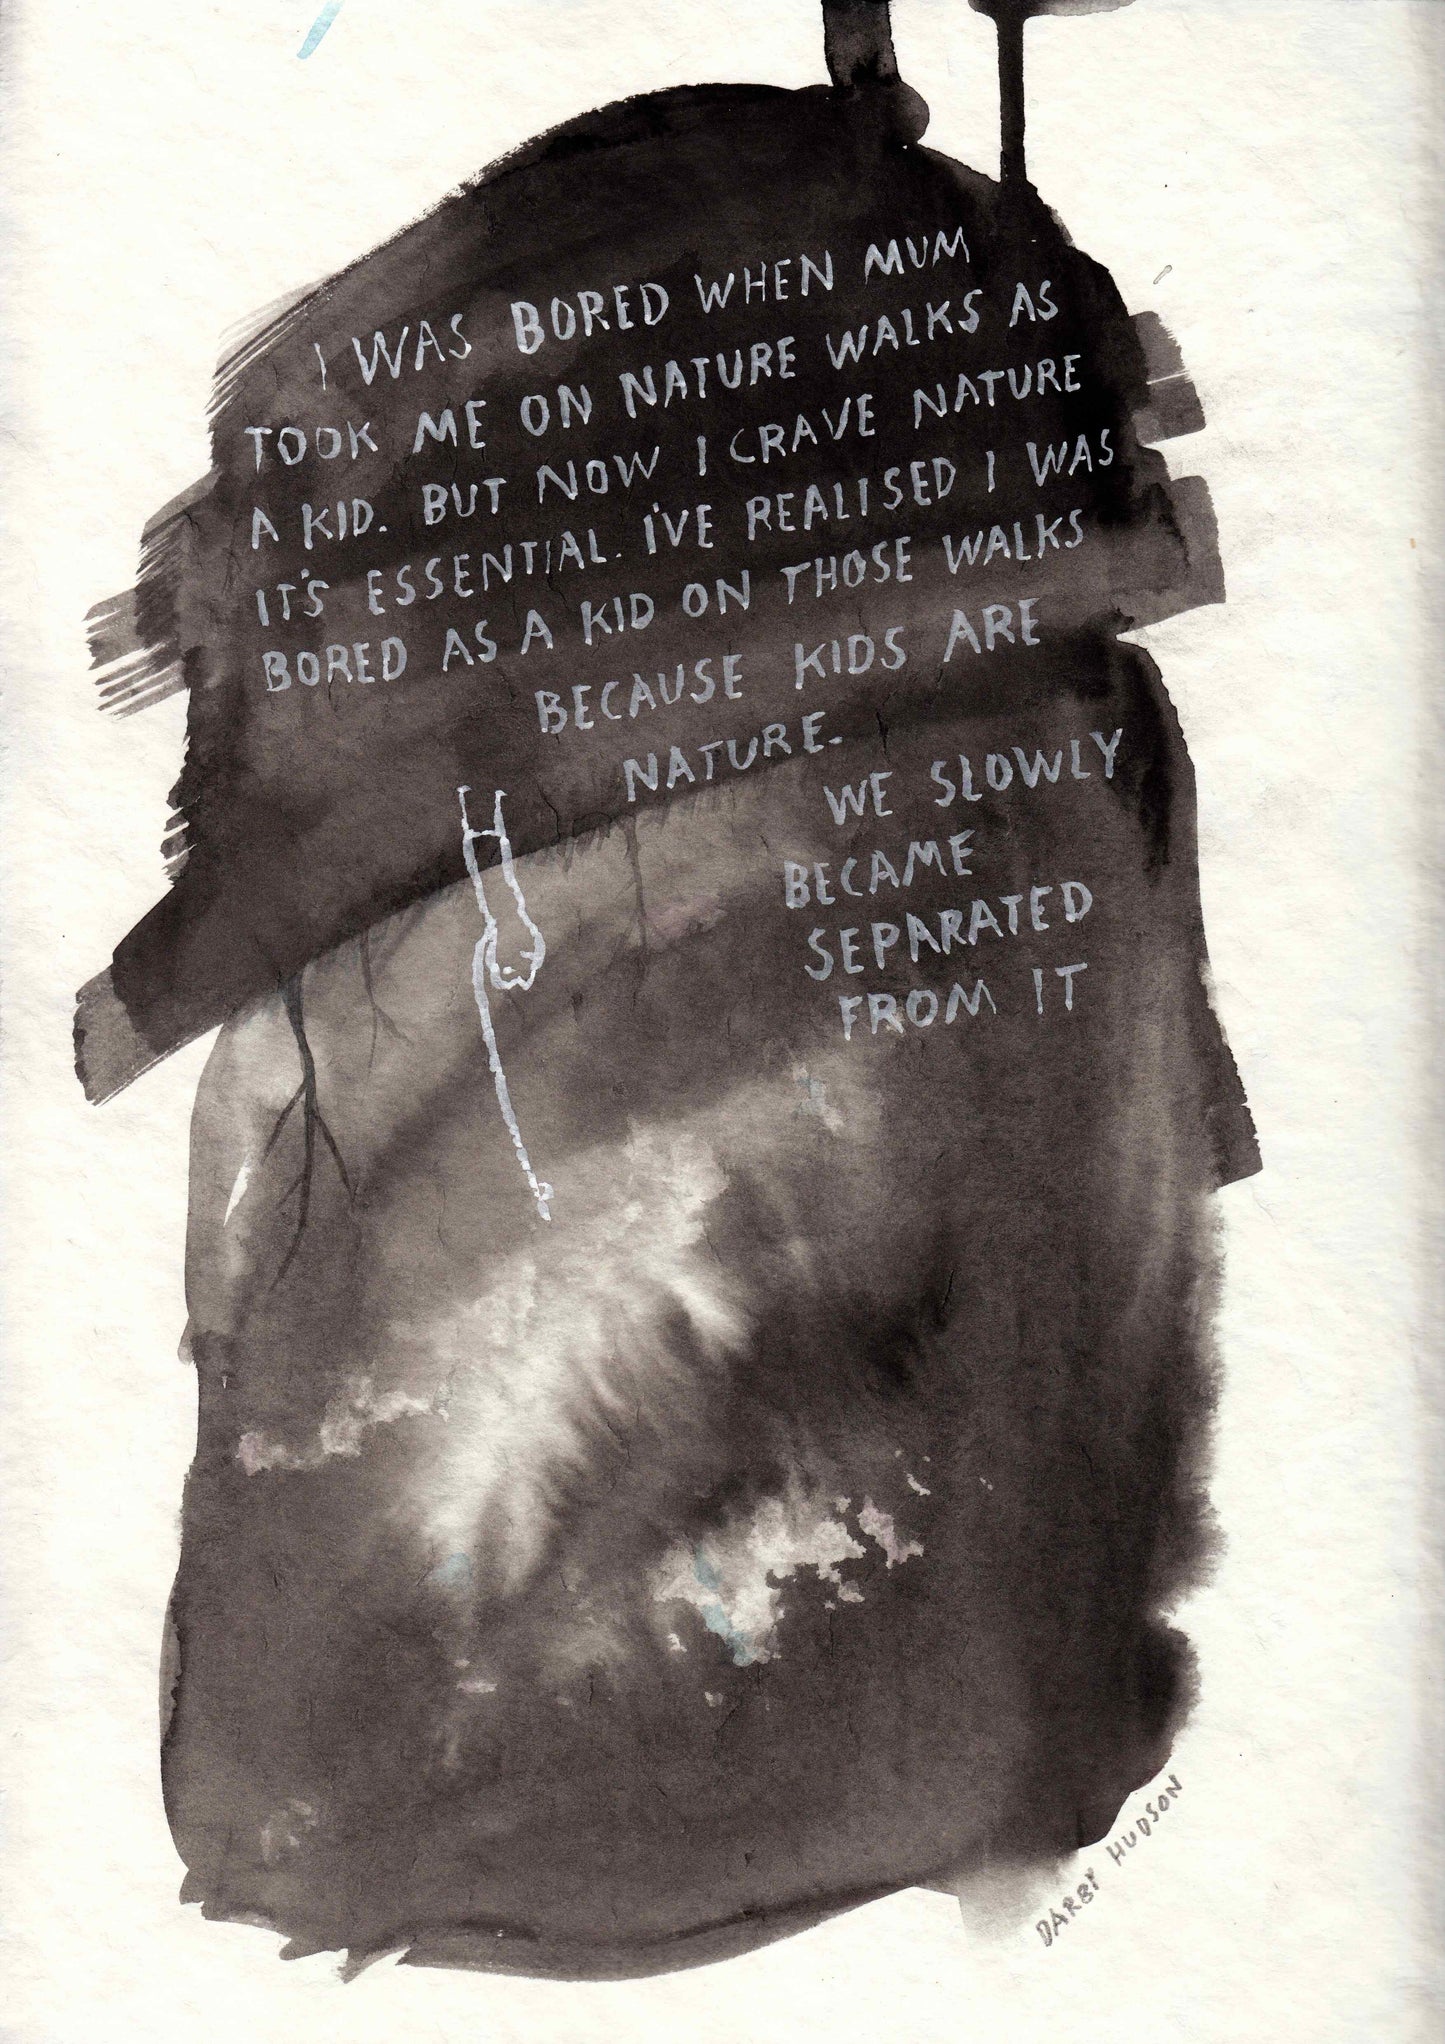 I WAS BORED WHEN MUM
TOOK ME ON NATURE WALKS AS
A KID. BUT NOW I CRAVE NATURE
IT'S ESSENTIAL. I'VE REALISED I WAS
BORED AS A KID ON THOSE WALKS
BECAUSE KIDS ARE
NATURE.
WE SLOWLY
BECAME
SEPARATED
FROM IT
DARBY HUDSON